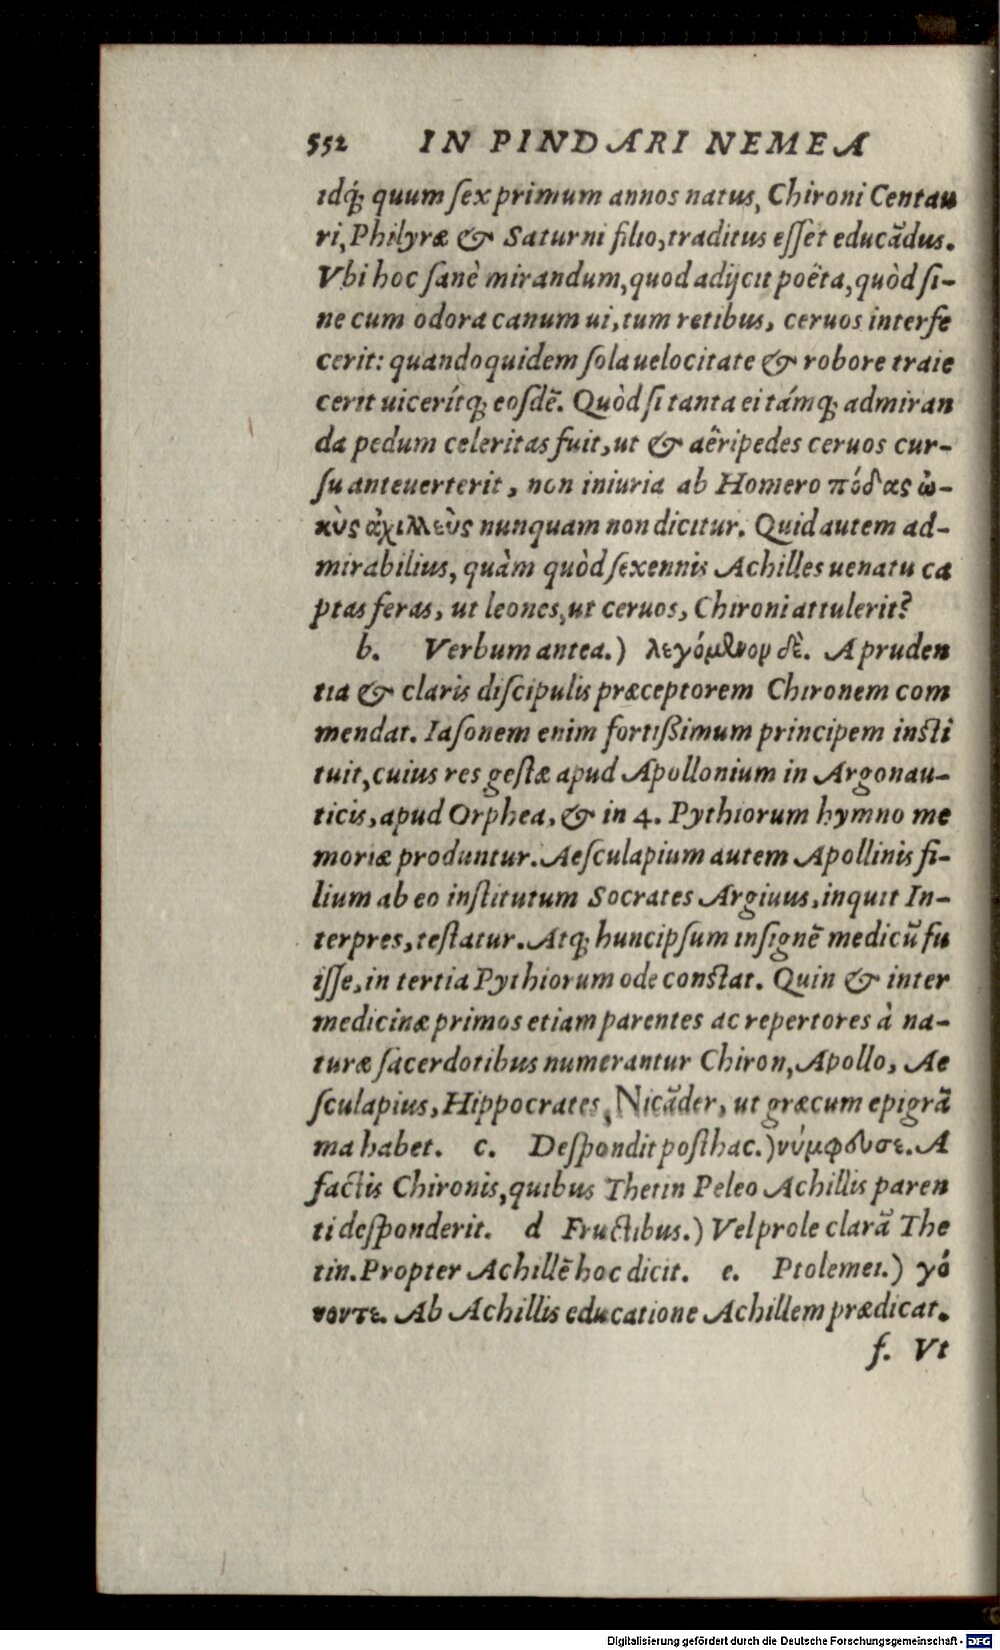 552 IN PINDARI NEMEA
idq́; quum ſex primum annos natus, Chironi Centau
ri, Philyræ & Saturni filio, traditus eſſet educãdus.
Vbi hoc ſanè mirandum, quod adijcit poëta, quòd ſi-
ne cum odora canum ui, tum retibus, ceruos interfe
cerit: quandoquidem ſola uelocitate & robore traie
cerit uicerítq; eoſdẽ. Quòd ſi tanta ei támq; admiran
da pedum celeritas fuit, ut & aëripedes ceruos cur-
ſu anteuerterit, non iniuria ab Homero πόδας ὠ-
κὺς ἀχιλλεὺς nunquam non dicitur. Quid autem ad-
mirabilius, quàm quòd ſexennis Achilles uenatu ca
ptas feras, ut leones, ut ceruos, Chironi attulerit?
b. Verbum antea.) λεγόμενον δὲ. A pruden
tia & claris diſcipulis præceptorem Chironem com
mendat. Iaſonem enim fortiſsimum principem inſti
tuit, cuius res geſtæ apud Apollonium in Argonau-
ticis, apud Orphea, & in 4. Pythiorum hymno me
moriæ produntur. Aeſculapium autem Apollinis fi-
lium ab eo inſtitutum Socrates Argiuus, inquit In-
terpres, teſtatur. Atq; huncipſum inſignẽ medicũ fu
iſſe, in tertia Pythiorum ode conſtat. Quin & inter
medicinæ primos etiam parentes ac repertores à na-
turæ ſacerdotibus numerantur Chiron, Apollo, Ae
ſculapius, Hippocrates, Nicãder, ut græcum epigrã
ma habet. c. Deſpondit poſthac.) νύμφευσε. A
factis Chironis, quibus Thetin Peleo Achillis paren
ti deſponderit. d Fructibus.) Vel prole clarã The
tin. Propter Achillẽ hoc dicit. e. Ptolemei.) γό
νοντε. Ab Achillis educatione Achillem prædicat.
f. Vt
Digitalisierung gefördert durch die Deutsche Forschungsgemeinschaft - DFG